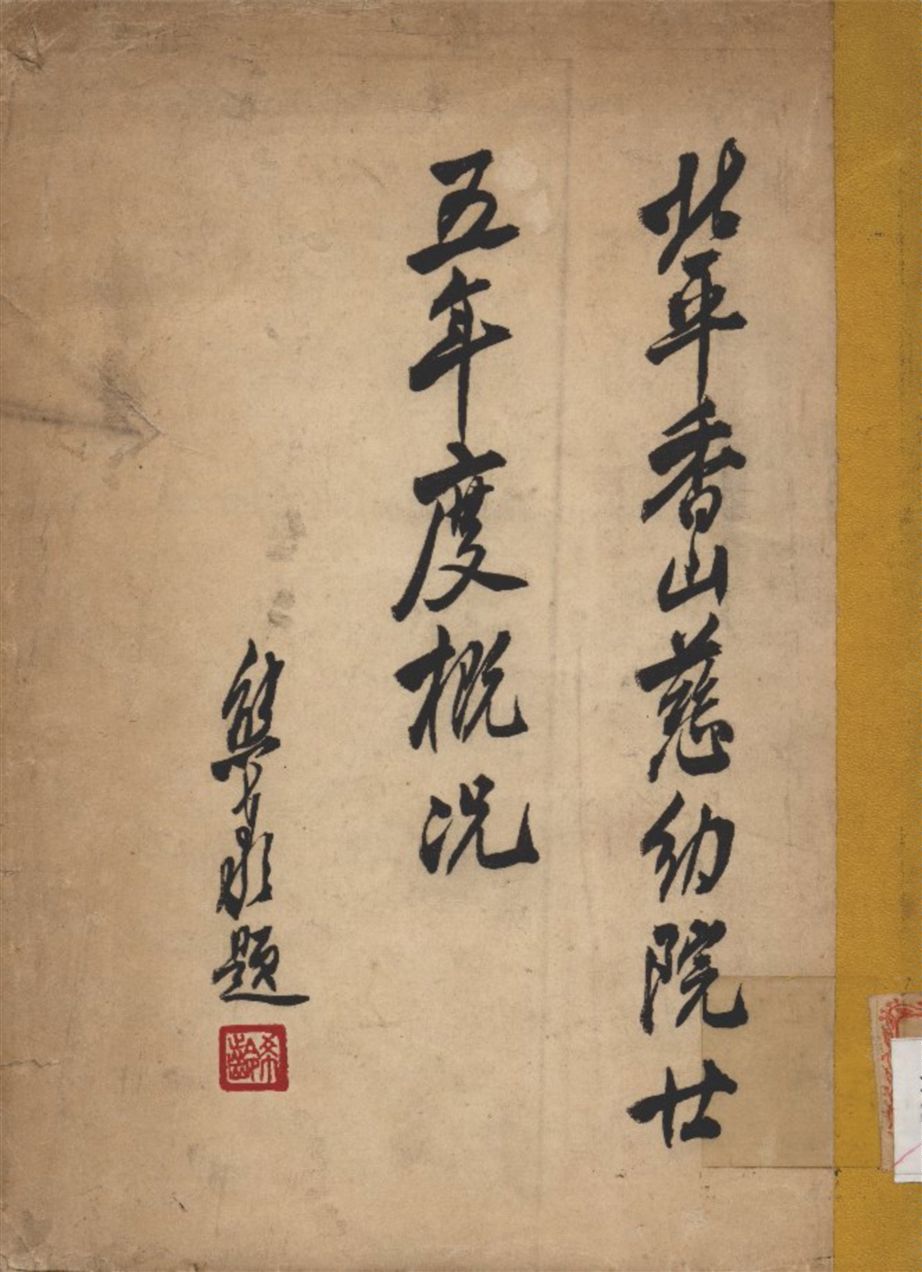 北平香山慈幼院廿
五年度概況
熊希齡題
希齡